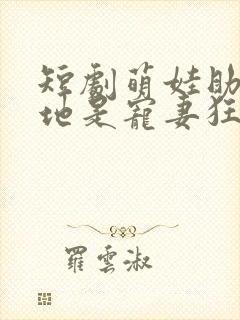 短劇萌娃助
地是寵妻狂
羅雲淑